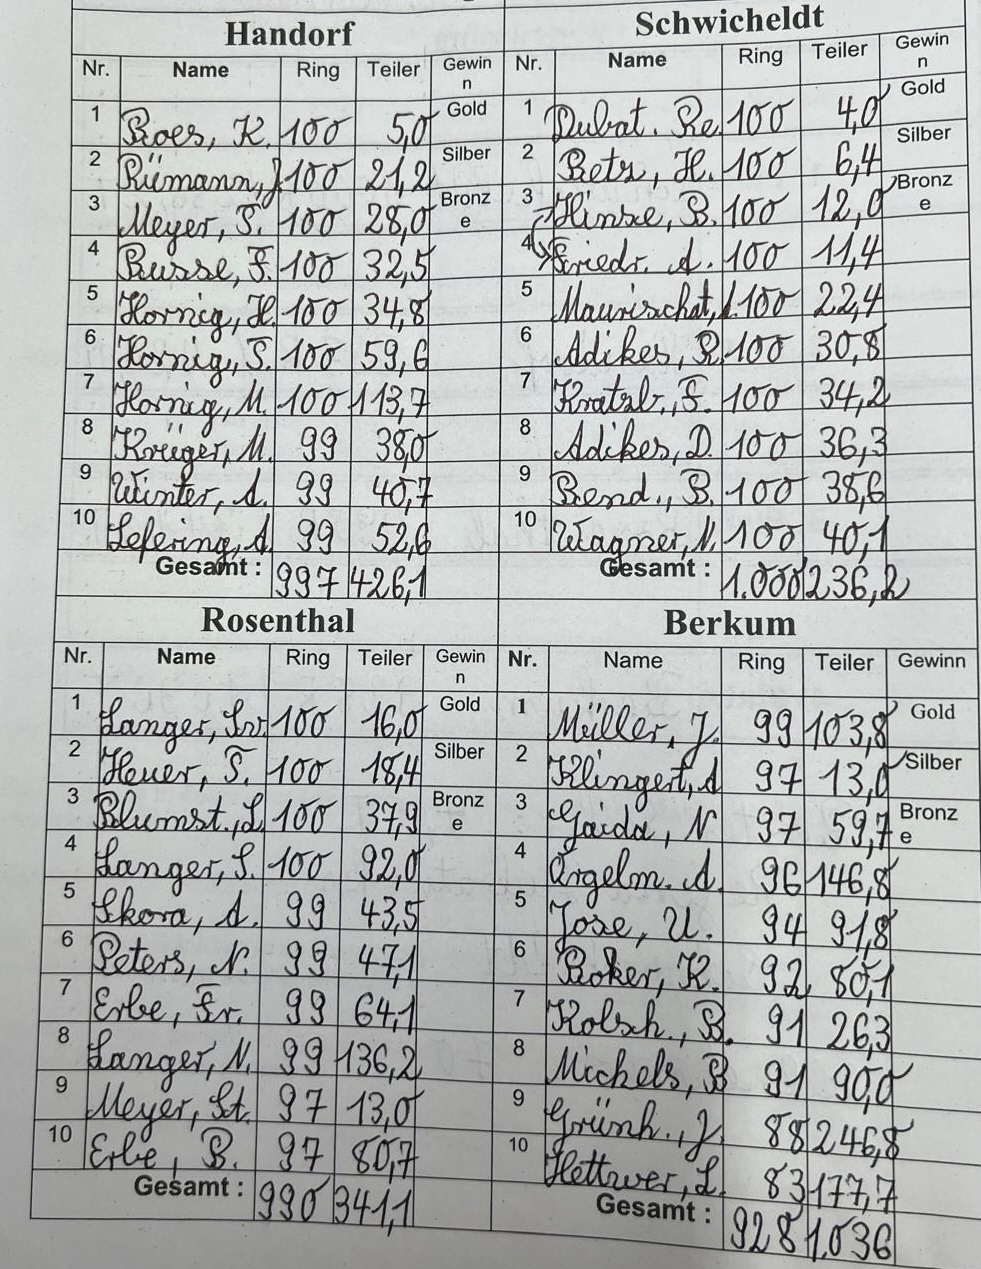 Handorf
Nr. Name Ring Teiler Gewinn
1 Boes, K. 100 5,0 Gold
2 Rüemann, J. 100 21,2 Silber
3 Meyer, S. 100 28,0 Bronze
4 Busse, F. 100 32,5
5 Hornig, H. 100 34,8
6 Hornig, S. 100 59,6
7 Hornig, M. 100 113,7
8 Krüger, M. 99 38,0
9 Winter, A. 99 40,7
10 Lefering, A. 99 52,6
Gesamt : 997 426,1
Schwicheldt
Nr. Name Ring Teiler Gewinn
1 Dubat. Re. 100 4,0 Gold
2 Betz, H. 100 6,4 Silber
3 Hinze, B. 100 12,0 Bronze
4 Friedr. A. 100 11,4
5 Maurischat, 100 22,4
6 Adikes, R. 100 30,8
7 Kratzb., S. 100 34,2
8 Adikes, D. 100 36,3
9 Bend., B. 100 38,6
10 Wagner, N. 100 40,1
Gesamt : 1.000 236,2
Rosenthal
Nr. Name Ring Teiler Gewinn
1 Langer, 100 16,0 Gold
2 Heuer, S. 100 18,4 Silber
3 Blumst., L. 100 37,9 Bronze
4 Langer, S. 100 92,0
5 Skora, A. 99 43,5
6 Peters, N. 99 47,1
7 Erbe, Fr. 99 64,1
8 Langer, N. 99 136,2
9 Meyer, St. 97 13,0
10 Erbe, B. 97 80,7
Gesamt : 990 341,1
Berkum
Nr. Name Ring Teiler Gewinn
1 Müller, J. 99 103,8 Gold
2 Klingert, A 97 13,0 Silber
3 Gaida, N 97 59,7 Bronze
4 Orgelm. A. 96 146,8
5 Jose, U. 94 91,8
6 Boker, K. 92 80,1
7 Kolsch., B. 91 26,3
8 Michels, B 91 90,0
9 Grünh., J. 88 246,8
10 Hettwer, L. 83 177,7
Gesamt : 928 1.036